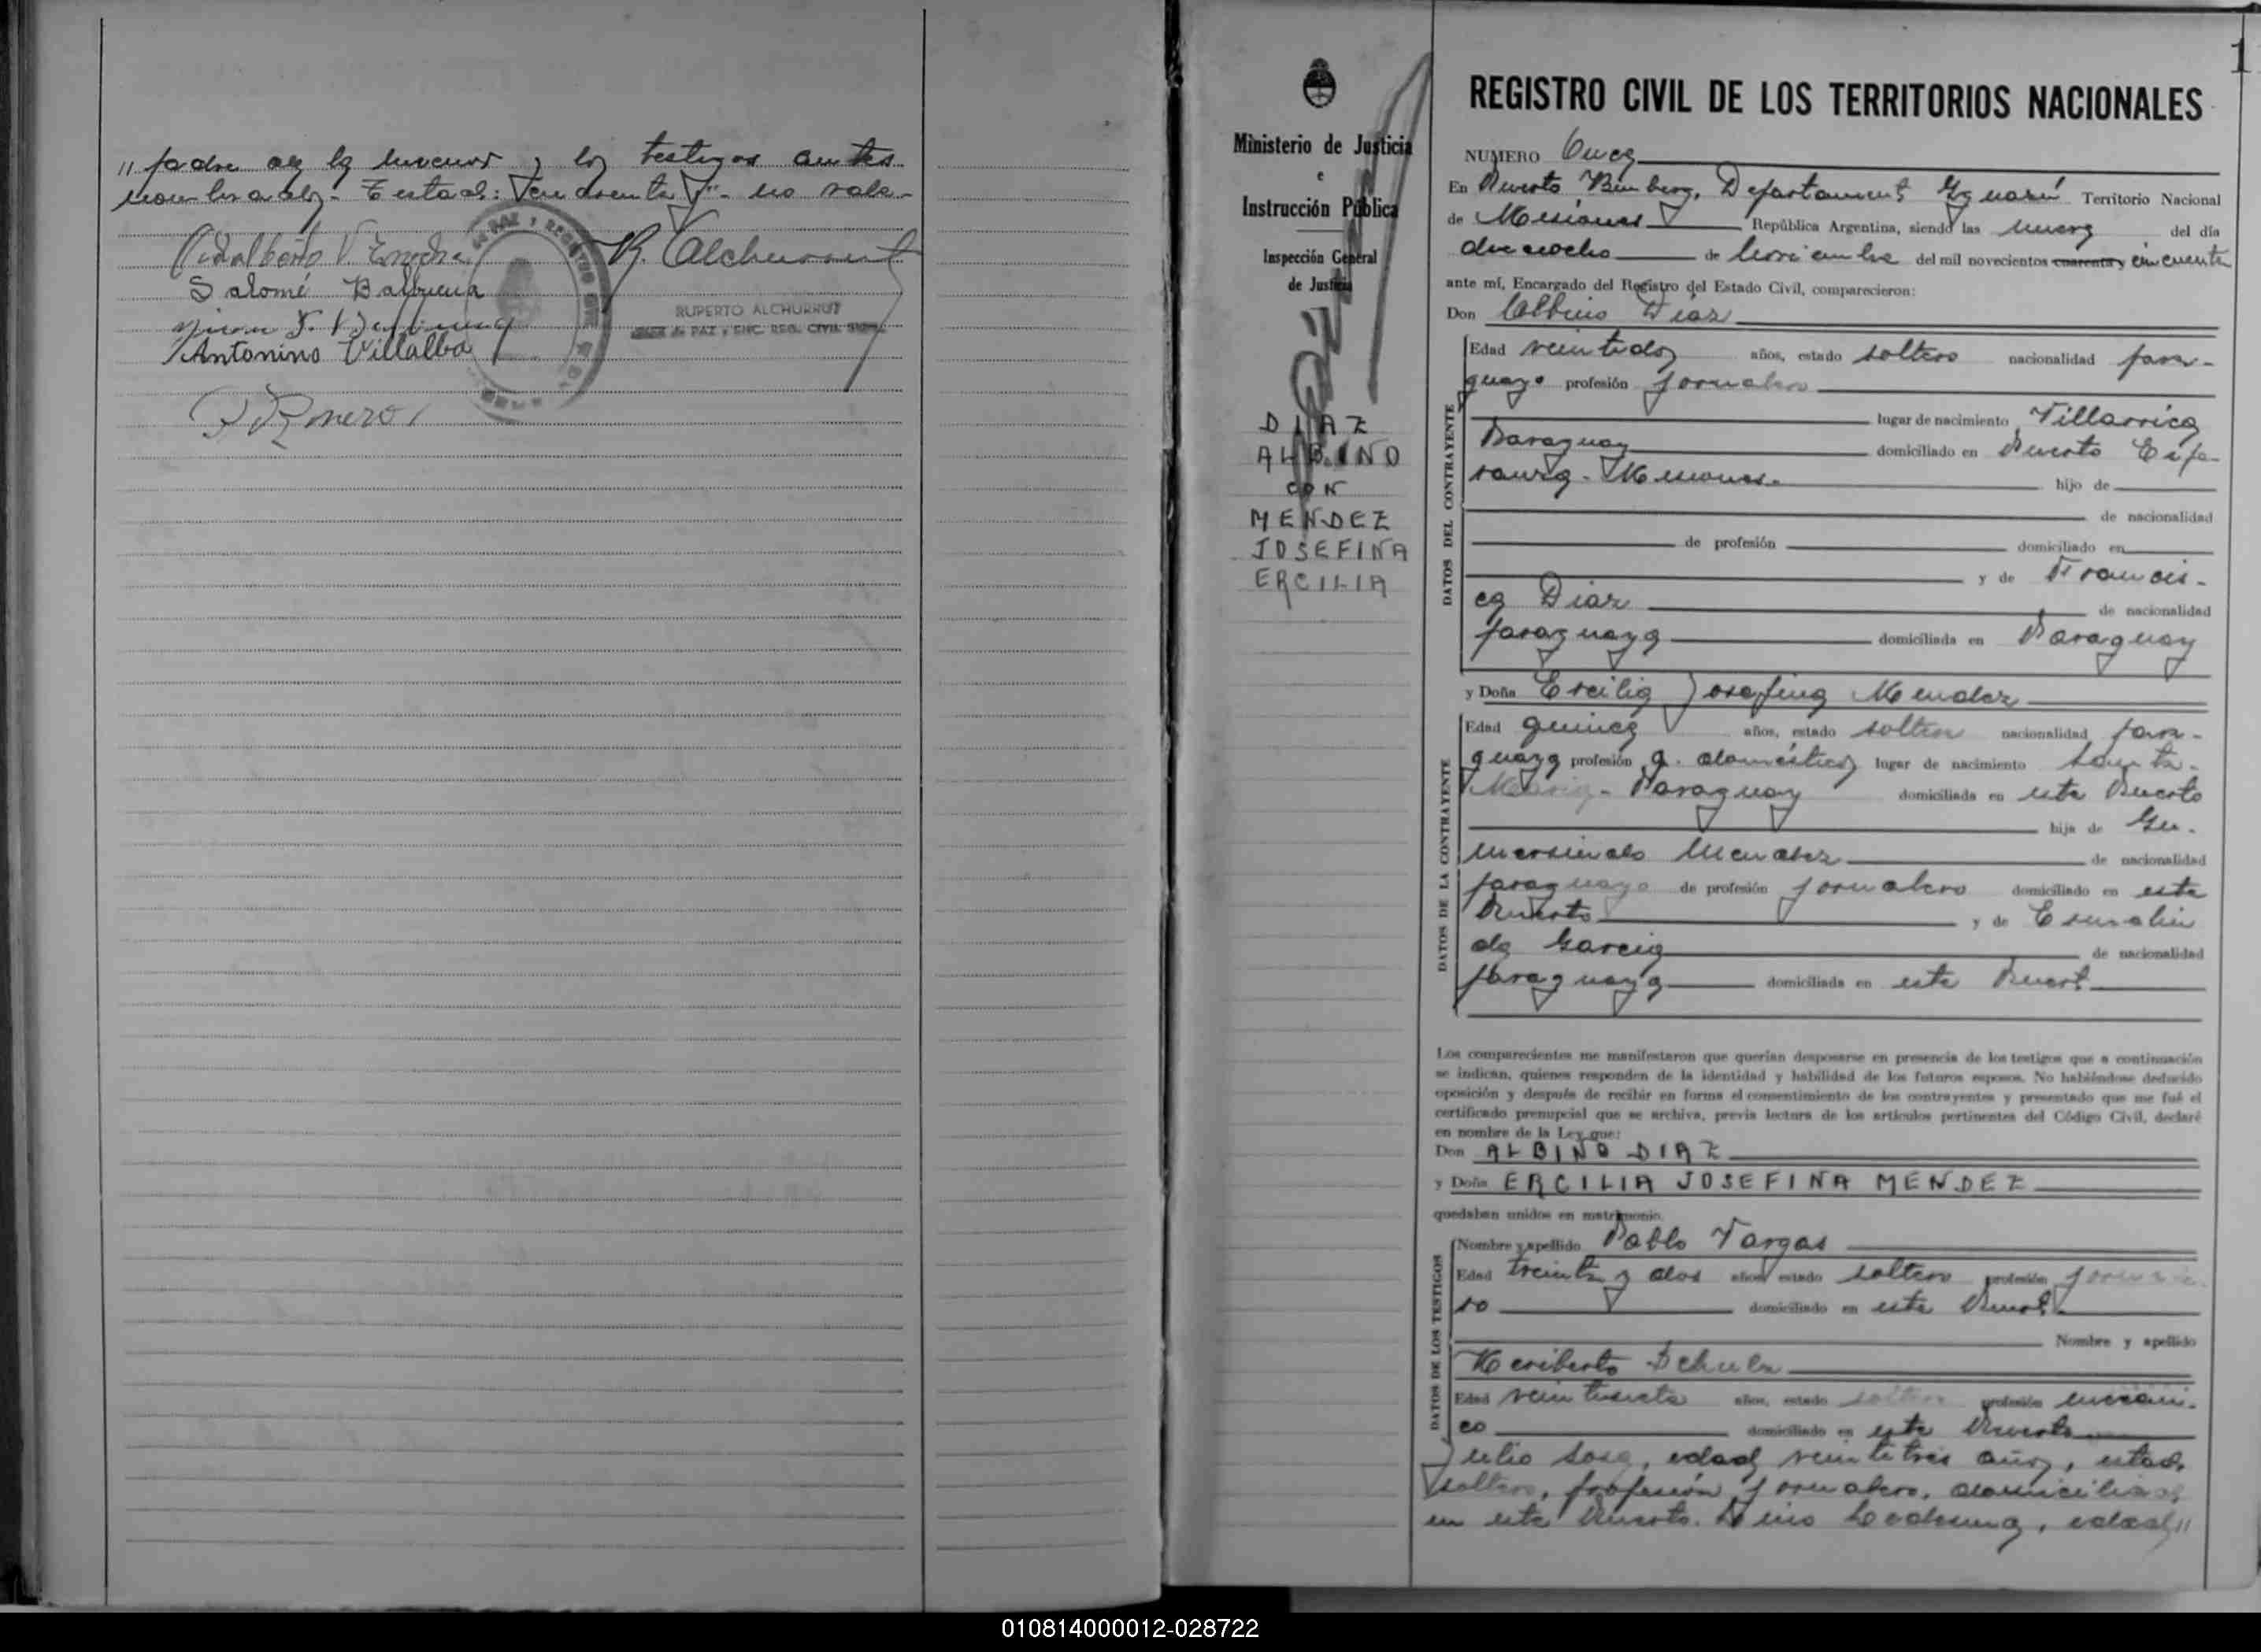 " padre de la menor y los testigos antes
nombrados.- Testado: no vale.-
R. Alchurrut
Salomé Balbuena
RUPERTO ALCHURRUT
JUEZ de PAZ y ENC. REG. CIVIL
Antonino Villalba
1
Ministerio de Justicia
e
Instrucción Pública
Inspección General
de Justicia
DIAZ
ALBINO
CON
MENDEZ
JOSEFINA
ERCILIA
REGISTRO CIVIL DE LOS TERRITORIOS NACIONALES
NUMERO Once
En Puerto Bemberg, Departamento Iguazú Territorio Nacional
de Misiones República Argentina, siendo las nueve del día
dieciocho de noviembre del mil novecientos cuarenta y cincuenta
ante mí, Encargado del Registro del Estado Civil, comparecieron:
Don Albino Díaz
DATOS DEL CONTRAYENTE
Edad veintidos años, estado soltero nacionalidad para-
guayo profesión jornalero
lugar de nacimiento Villarrica
Paraguay domiciliado en Puerto Espe-
ranza - Misiones.- hijo de
de nacionalidad
de profesión domiciliado en
y de Francis-
ca Díaz de nacionalidad
paraguaya domiciliada en Paraguay
y Doña Ercilia Josefina Mendez
DATOS DE LA CONTRAYENTE
Edad quince años, estado soltera nacionalidad para-
guaya profesión q. domésticos lugar de nacimiento Santa
María - Paraguay domiciliada en este Puerto
hija de Gu-
mersindo Mendez de nacionalidad
paraguayo de profesión jornalero domiciliado en este
Puerto y de Esmelin
da Garcia de nacionalidad
paraguaya domiciliada en este Puerto
Los comparecientes me manifestaron que querían desposarse en presencia de los testigos que a continuación
se indican, quienes responden de la identidad y habilidad de los futuros esposos. No habiéndose deducido
oposición y después de recibir en forma el consentimiento de los contrayentes y presentado que me fué el
certificado prenupcial que se archiva, previa lectura de los artículos pertinentes del Código Civil, declaré
en nombre de la Ley que:
Don ALBINO DIAZ
y Doña ERCILIA JOSEFINA MENDEZ
quedaban unidos en matrimonio.
DATOS DE LOS TESTIGOS
Nombre y apellido Pablo Vargas
Edad treinta y dos años, estado soltero profesión jornale-
ro domiciliado en este Puerto
Nombre y apellido
Heriberto Schulz
Edad veintisiete años, estado soltero profesión mecáni-
co domiciliado en este Puerto
Julio Sosa, edad veintitrés años, estado
soltero, profesión jornalero, domiciliado
en este Puerto. Ledesma, edad "
010814000012-028722